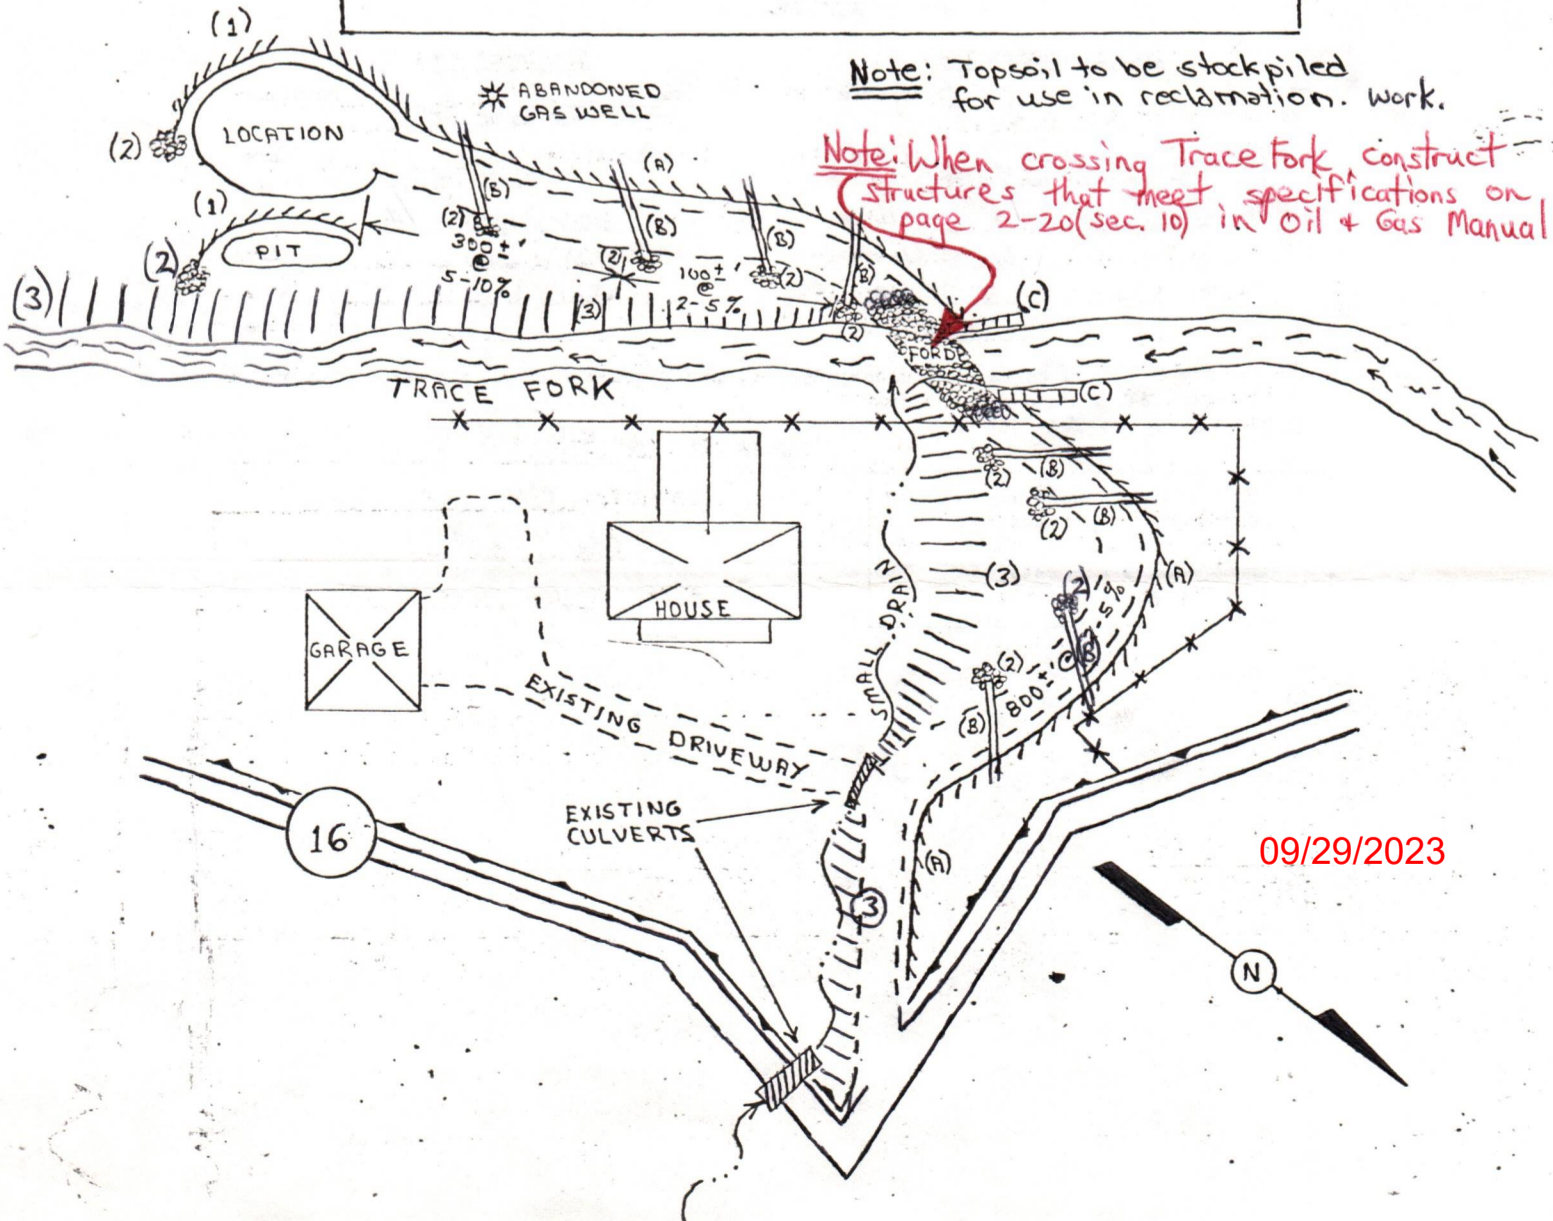 (1)
Note: Topsoil to be stockpiled
for use in reclamation. work.
ABANDONED
GAS WELL
LOCATION
(2)
Note: When crossing Trace Fork, construct
structures that meet specifications on
page 2-20 (sec. 10) in Oil & Gas Manual
(A)
(1)
(B)
(B)
(B)
(B)
(2)
300±'
@
5-10%
PIT
(2)
(2)
100±'
@
2-5%
(2)
(3)
(3)
(2)
(C)
FORD
TRACE FORK
(C)
(2)
(B)
(2)
(B)
(3)
(A)
2
5%
SMALL DRAIN
HOUSE
GARAGE
(B)
(2)
800±'
(B)
EXISTING DRIVEWAY
EXISTING
CULVERTS
16
(A)
09/29/2023
3
N